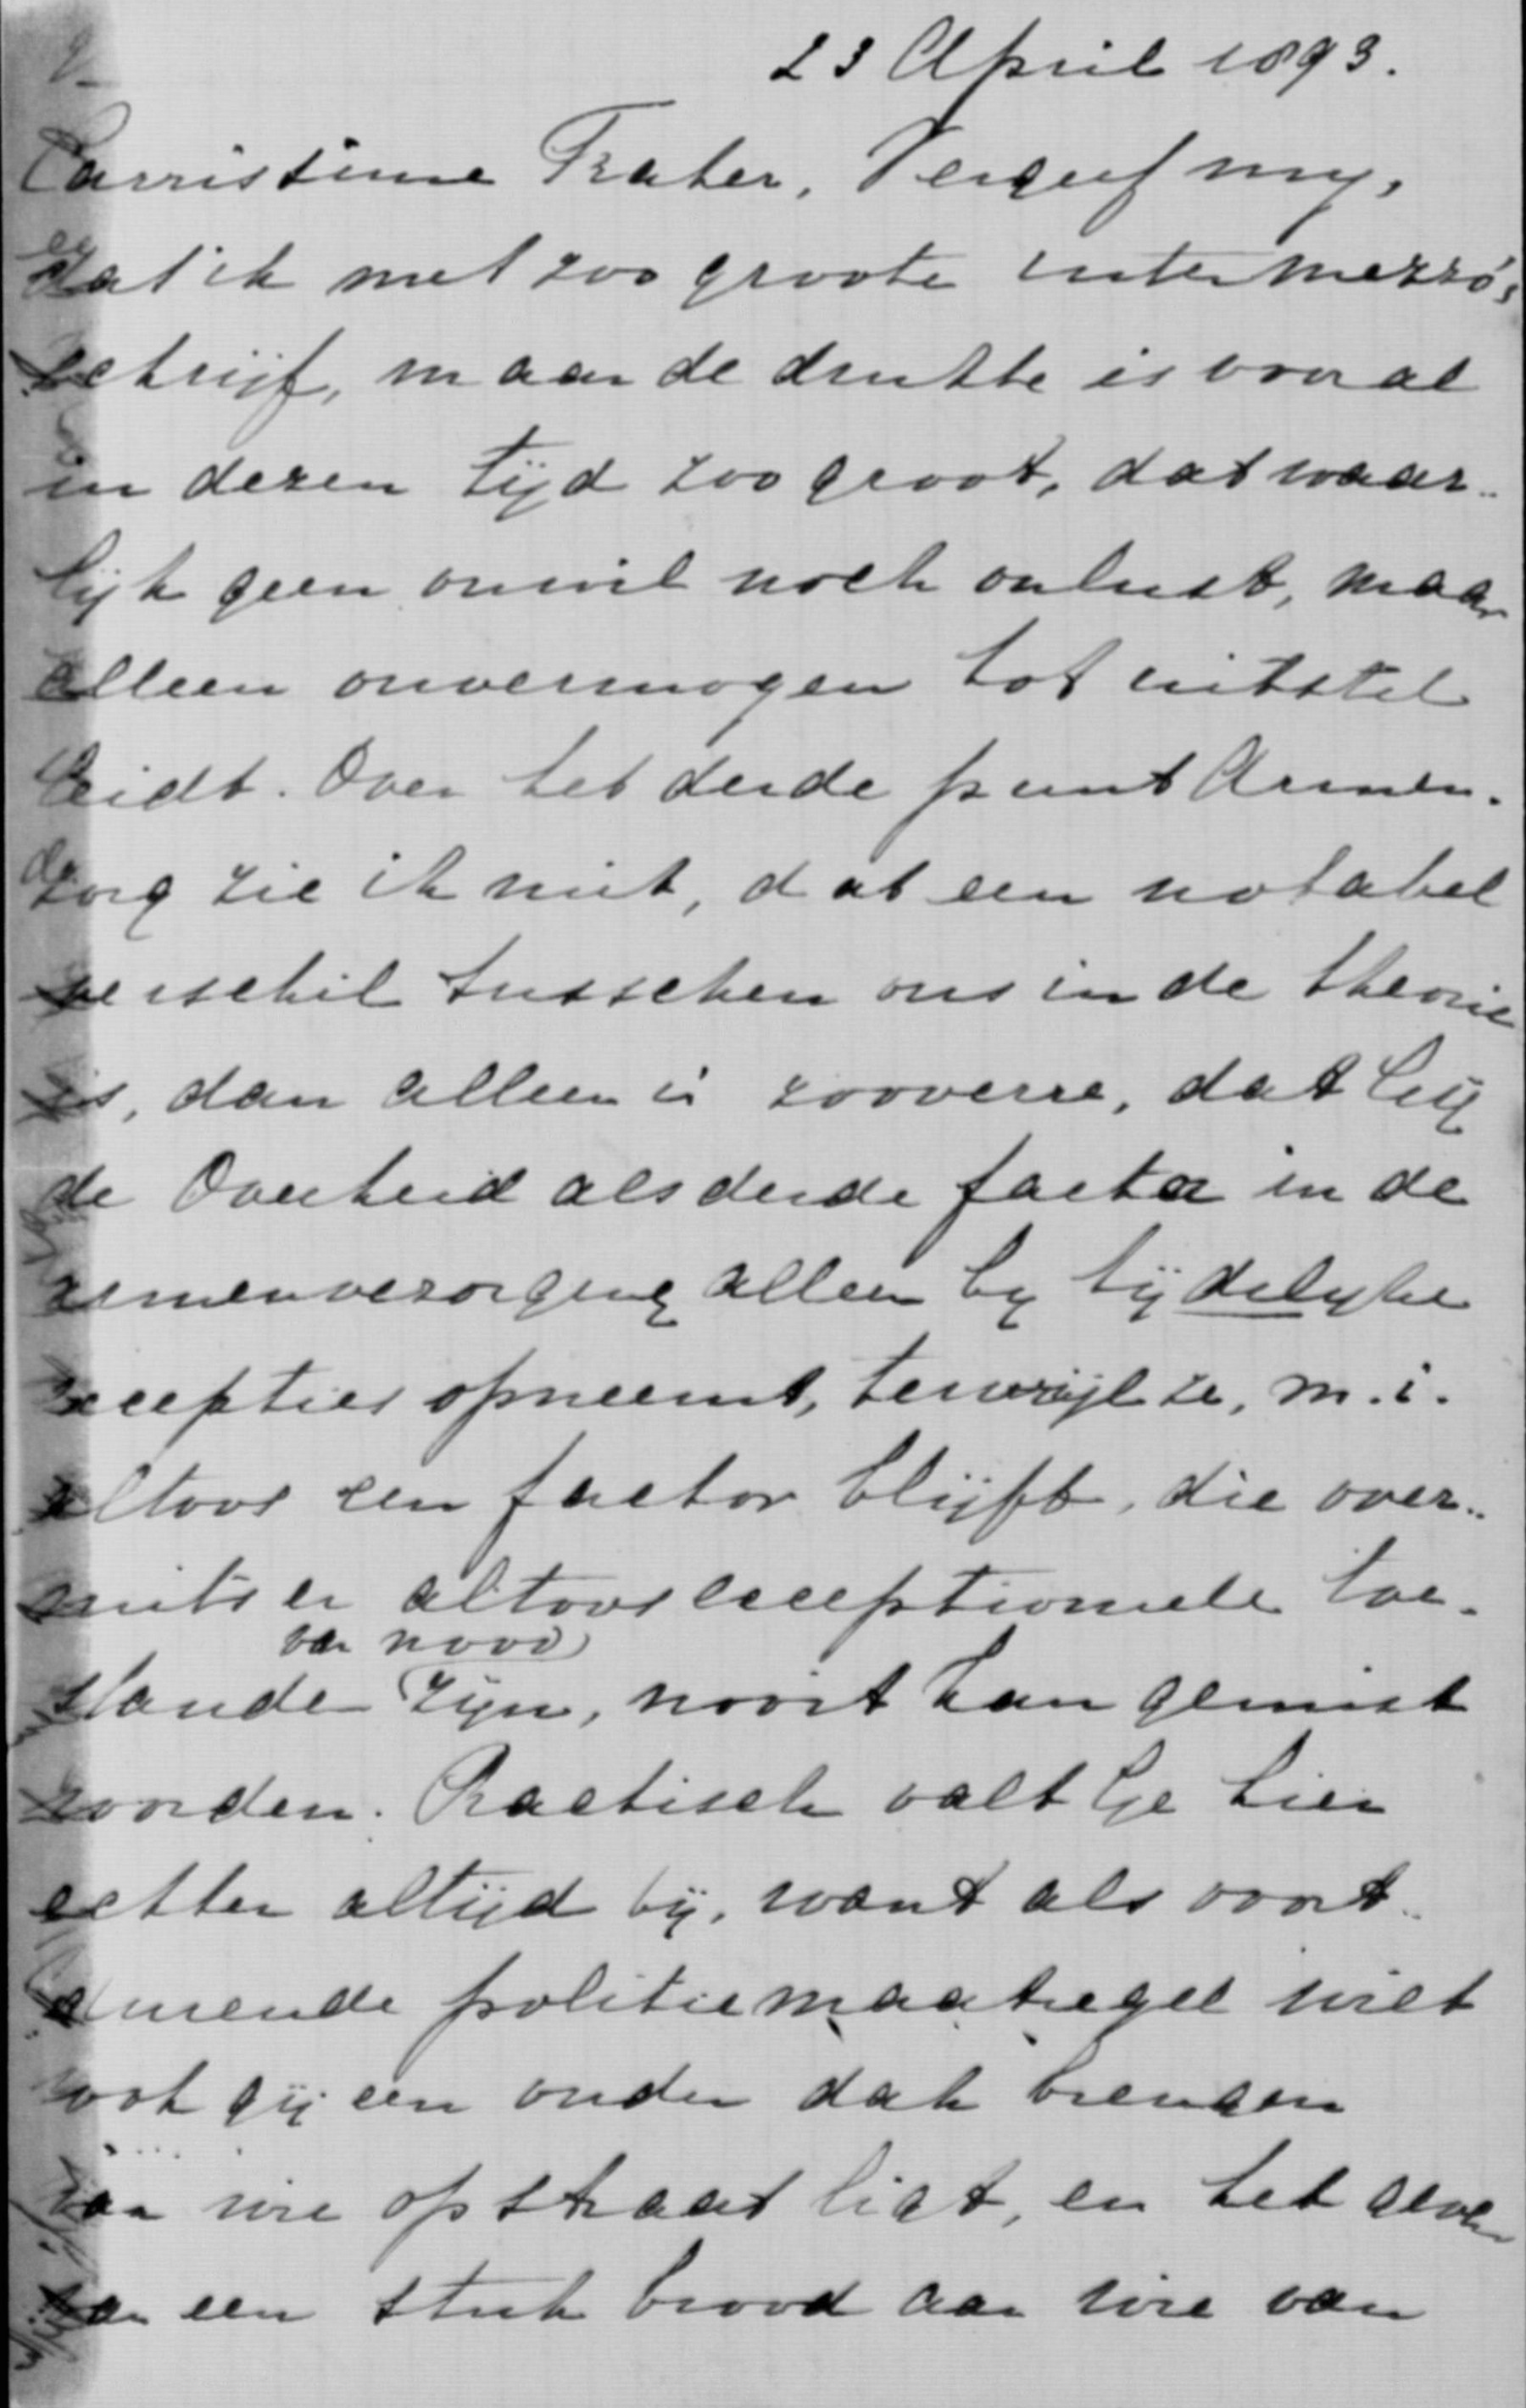 23 April 1893.
Carrissime Frater, Vergeef my,
dat ik met zoo groote intermezzó's
schrijf, maar de drukte is vooral
in dezen tijd zoo groot, dat waar-
lijk geen onwil noch onlust, maar
alleen onvermogen tot uitstel
leidt. Over het derde punt Armen-
zorg zie ik niet, dat een notabel
verschil tusschen ons in de theorie
is, dan alleen in zooverre, dat Gij
de Overheid als derde factor in de
armenverzorging alleen by tijdelyke
excepties opneemt, terwijl ze, m.i.
altoos een factor blijft, die over-
mits er altoos exceptionele toe-
van nood
standen zijn, nooit kan gemist
worden. Practisch valt Ge hier
echter altijd bij, want als voort-
durende politiemaatregel wilt
ook gij een onder dak brengen
van wie op straat ligt, en het geven
van een stuk brood aan wie van